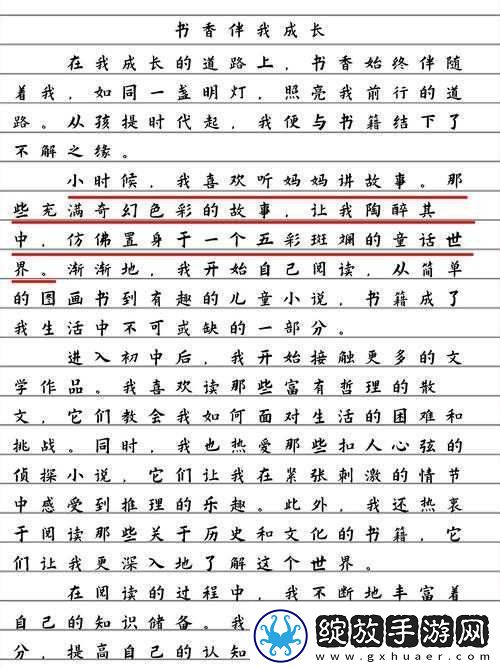 书香伴我成长
在我成长的道路上，书香始终伴随
着我，如同一盏明灯，照亮我前行的道
路。从孩提时代起，我便与书籍结下了
不解之缘。
小时候，我喜欢听妈妈讲故事。那
些充满奇幻色彩的故事，让我陶醉其
中，仿佛置身于一个五彩斑斓的童话世
界。渐渐地，我开始自己阅读，从简单
的图画书到有趣的儿童小说，书籍成了
我生活中不可或缺的一部分。
进入初中后，我开始接触更多的文
学作品。我喜欢读那些富有哲理的散
文，它们教会我如何面对生活的困难和
挑战。同时，我也热爱那些扣人心弦的
侦探小说，它们让我在紧张刺激的情节
中感受到推理的乐趣。此外，我还热衷
于阅读那些关于历史和文化的书籍，它
们让我更深入地了解这个世界。
在阅读的过程中，我不断地丰富着
自己的知识储备。我
分，提高自己的认知
绽放手游网
www.gxhuaer.com